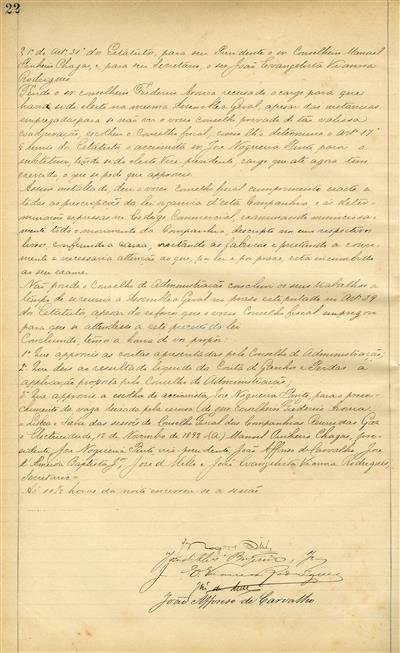 22
§ 1º do Artº 31º do Estatuto, para seu Presidente o sr Conselheiro Manuel
Pinheiro Chagas, e para seu Secretario, o sr João Evangelista Vianna
Rodrigues
Tendo o sr conselheiro Frederico recusado o cargo para que
havia sido eleito na mesma Assemblea Geral, apesar das instancias
empregadas para se não ver o vosso conselho privado de tão valiosa
coadjuvação, escolheu o Conselho fiscal, como lh'o determina o artº 17º
do Estatuto, o accionista sr Jose Nogueira Pinto para o
substituir, tendo sido eleito Vice presidente cargo que até agora tem
exercido o que se pede que approveis.
Assim installado, deu o vosso conselho fiscal cumprimento exacto a
todas as prescripções da lei organica d'esta Companhia, e ás deter-
minações expressas no Codigo Commercial, examinando minuciosa-
mente todo o movimento da Companhia, descripto nos seus respectivos
livros, conferindo a caixa, visitando as fabricas e prestando a conve-
niente e necessaria attenção ao que, por lei e por posse, está incumbido
ao seu exame.
Não poude o Conselho de Administração concluir os seus trabalhos a
tempo de se reunir a Assemblea Geral no praso estipulado no Artº 29
do Estatuto, apesar do esforço que o vosso Conselho fiscal empregou
para que se attendesse a este preceito da lei
Concluindo, temos a honra de vos propôr:
1º Que approveis as contas apresentadas pelo Conselho de Administração;
2º Que deis ao resultado liquido da Conta de Ganhos e Perdas a
applicação proposta pelo Conselho de Administração;
3º Que approveis a escolha do accionista Jose Nogueira Pinto para o preen-
chimento da vaga deixada pela recusa do sr Conselheiro Frederico
Lisboa - Sala das sessões do Conselho Fiscal das Companhias Reunidas Gaz
e Electricidade, 12 de Novembro de 1892 - (a.) Manuel Pinheiro Chagas, pre-
sidente, Jose Nogueira Pinto vice-presidente, João Affonso de Carvalho, Jose
d'Almeida Baptista Jr, Jose d Mello e João Evangelista Vianna Rodrigues,
Secretario -
Ás 10½ horas da noite encerrou-se a sessão.
J. E. Vianna Rodrigues
João Affonso de Carvalho